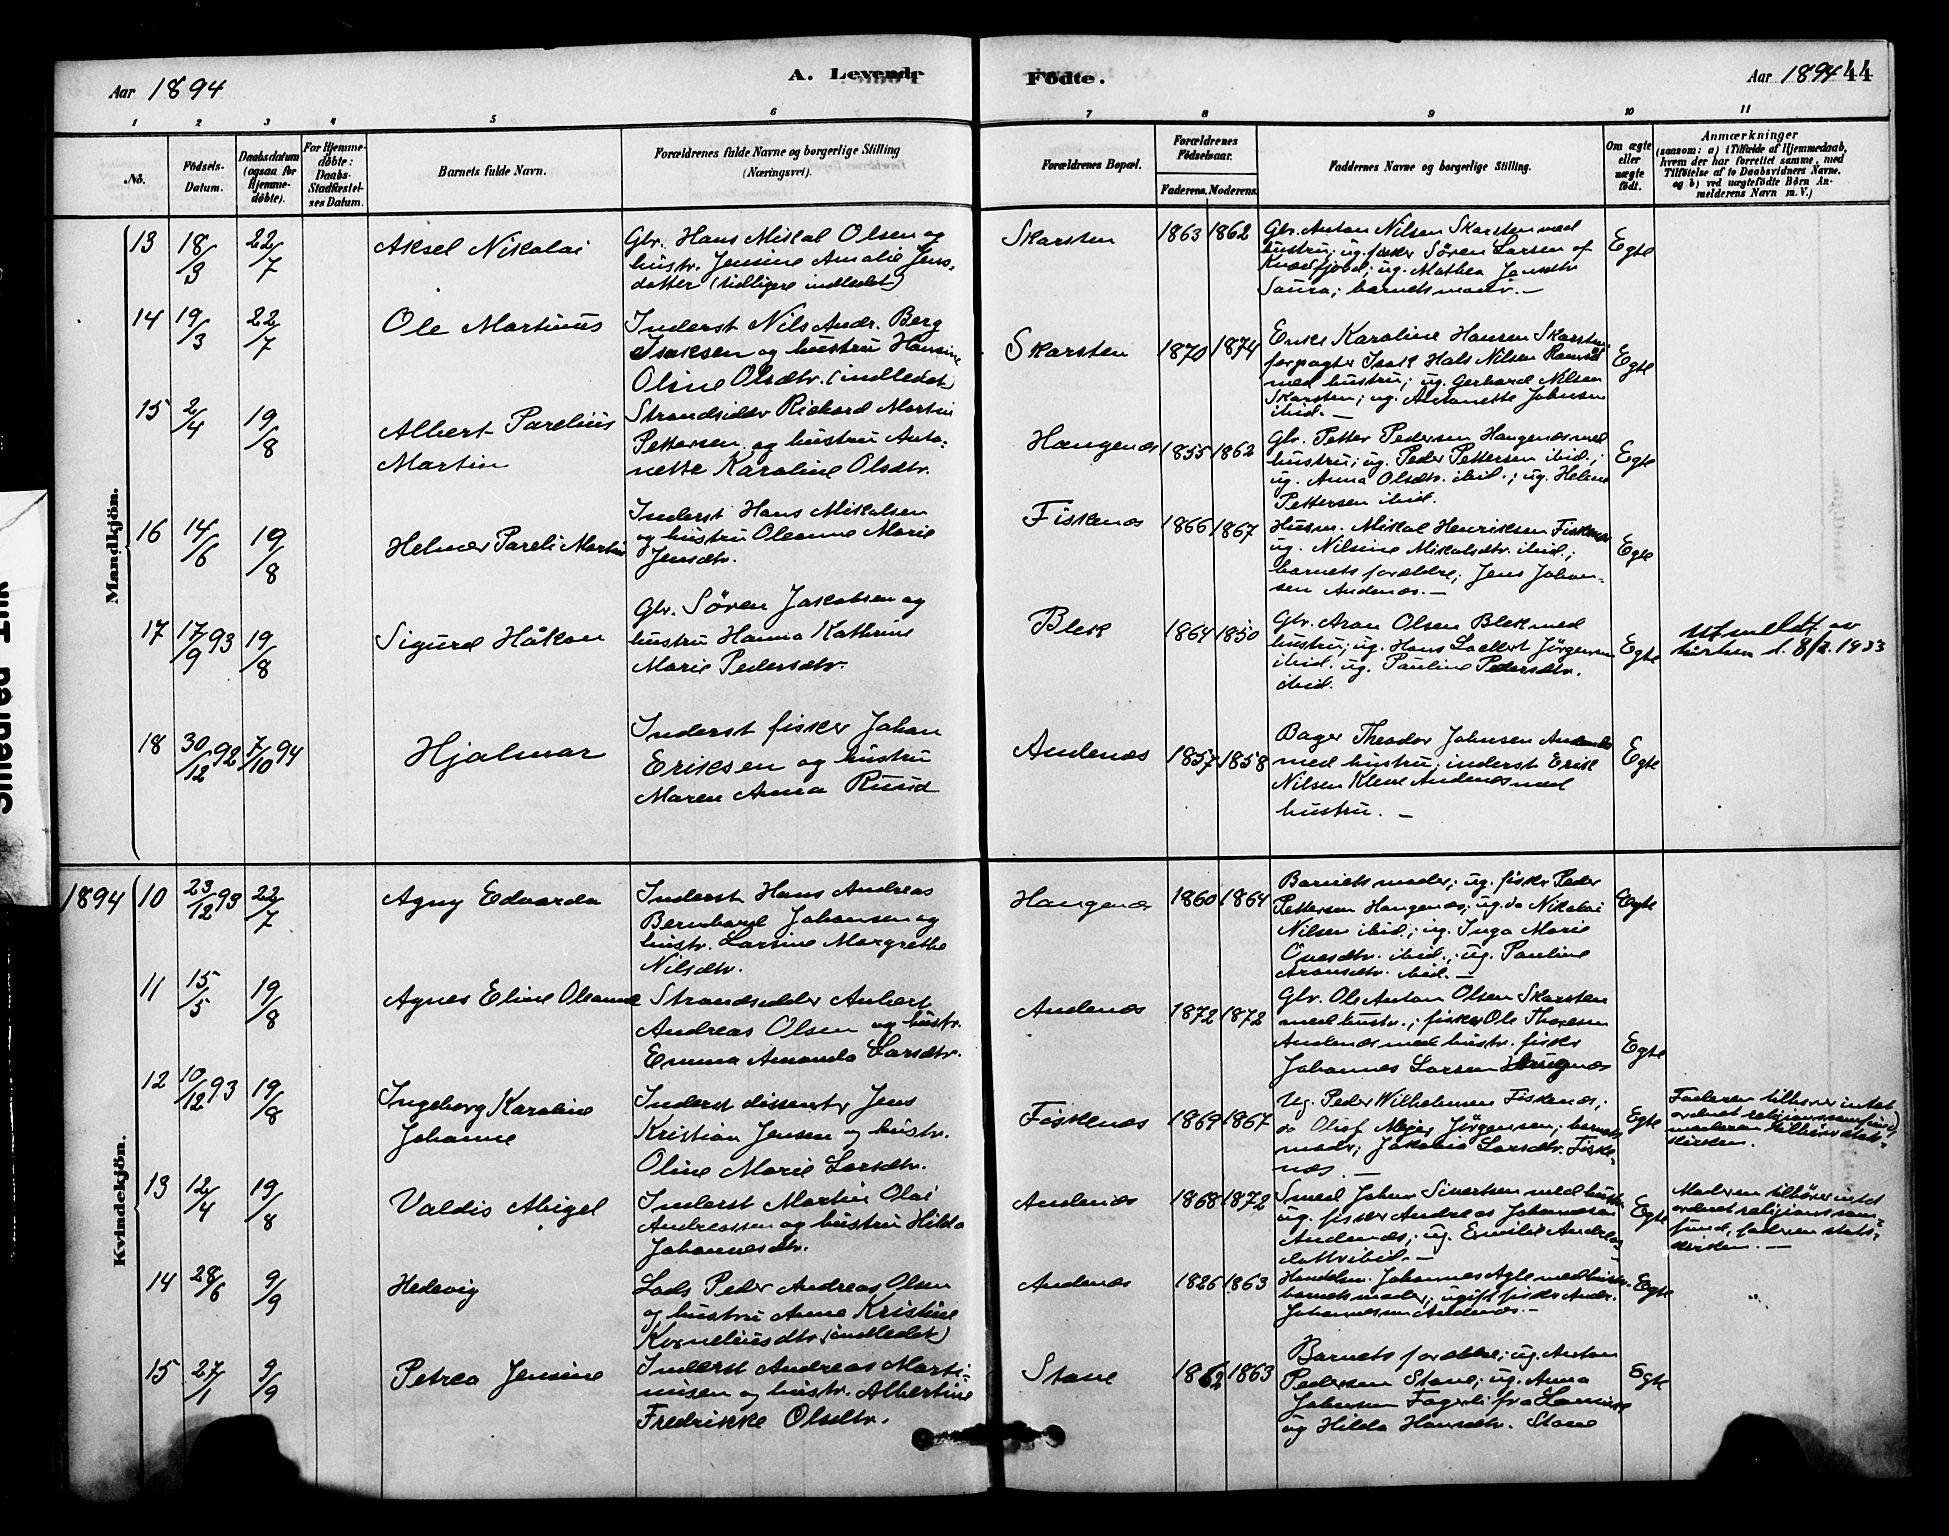 Aar 1894
A. Levende
Födte.
Aar 1894 44
1 2 3 4 5 6 7 8 9 10 11
No.
Födsels-
Datum.
Daabsdatum
(ogsaa for
Hjemme-
döbte).
For Hjemme-
döbte:
Daabs-
Stadfæstel-
ses Datum.
Barnets fulde Navn.
Forældrenes fulde Navne og borgerlige Stilling
(Næringsvei).
Forældrenes Bopæl.
Forældrenes
Födselsaar.
Faderens. Moderens.
Faddernes Navne og borgerlige Stilling.
Om ægte
eller
uægte
födt.
Anmærkninger
(saasom: a) i Tilfælde af Hjemmedaab,
hvem der har forrettet samme, med
Tilföielse af to Daabsvidners Navne,
og b) ved uægtefödte Börn An-
melderens Navn m. V.)
Mandkjön.
13 18/3 22/7 Aksel Nikolai
Gbr. Hans Mikal Olsen og
hustr. Jensine Amalie Jens-
datter (tidligere indledet)
Skarsten 1863 1862
Gbr. Anton Nilsen Skarsten med
hustru; ug. fisker Søren Larsen af
ug. Mathea
Saura; barnets moder. –
Egte
14 19/3 22/7 Ole Martinus
Inderst Nils Andr. Berg
Isaksen og hustru Hansine
Oline Olsdtr. (indledet)
Skarsten 1870 1874
Enke Karoline Hansen Skarsten;
forpagter Isak Hals Nilsen
med hustru; ug. Gerhard Nilsen
Skarsten; ug. Antonette Johnsen
ibid. –
Egte
15 2/4 19/8 Albert Parelius
Martin
Strandsidder Rickard Martin
Pettersen og hustru Anto-
nette Karoline Olsdtr.
Haugenæs 1855 1862
Gbr. Petter Pedersen Haugenæs med
hustru; ug. Peder Pettersen ibid.;
ug. Anna Olsdtr. ibid.; ug. Helene
Pettersen ibid.
Egte
16 14/6 19/8 Helmer Pareli Martin
Inderst Hans Mikalsen
og hustru Oleanne Marie
Jensdtr.
Fiskenæs 1866 1867
Husm. Mikal Henriksen Fiskenæs
ug. Nilsine Mikalsdtr. ibid.;
barnets forældre; Jens Johan-
sen Andenæs. –
Egte
17 17/9 93 19/8 Sigurd Håkon
Gbr. Søren Jakobsen og
hustru Hanna Kathrine
Marie Pedersdtr.
Bleik 1864 1850
Gbr. Aron Olsen Bleik med
hustru; ug. Hans Jørgensen
ibid. ug. Pauline Pedersdtr.
ibid.
Egte
utmeldt av
kirken d. 8/2 1933
18 30/12 92 7/10 94 Hjalmar
Inderst fisker Johan
Eriksen og hustru
Maren Anna Ruud
Andenæs 1857 1858
Bager Theodor Johnsen Andenæs
med hustru; inderst Erik
Nilsen Kleve Andenæs med
hustru. –
Egte
1894
Kvindekjön.
10 23/12 93 22/7 Agny Edvarda
Inderst Hans Andreas
Bernhard Johansen og
hustr. Larsine Margrethe
Nilsdtr.
Haugenæs 1860 1864
Barnets moder; ug. fisker Peder
Pettersen Haugenæs; ug. do Nikolai
Nilsen ibid.; ug. Inga Marie
ibid.; ug. Pauline
Aronsdtr. ibid. –
Egte
11 15/5 19/8 Agnes Eline Oleanne
Strandsidder Anbert
Andreas Olsen og hustr.
Emma Amanda Larsdtr.
Andenæs 1872 1872
Gbr. Ole Anton Olsen Skarsten
med hustr.; fisker Ole Thoresen
Andenæs med hustr. fisker
Johannes Larsen Haugnæs
Egte
12 10/12 93 19/8 Ingeborg Karoline
Johanne
Inderst dissenter Jens
Kristian Jensen og hustr.
Oline Marie Larsdtr.
Fiskenæs 1869 1867
Ug. Peder Wilhelmsen Fiskenæs;
do Oluf Mejer Jørgensen; barnets
moder; Jakobia Larsdtr. Fiske-
næs –
Egte
Faderen tilhører intet
ordnet religionssamfund,
moderen tilhører stats-
kirken.
13 12/4 19/8 Valdis Abigel
Inderst Martin Olai
Andreassen og hustru Hilda
Johannesdtr.
Andenæs 1868 1872
Smed Johan Sivertsen med hustru
ug. fisker Andreas Johannesen
Andenæs; ug. Emilie Andreas-
datter ibid. –
Egte
Moderen tilhører intet
ordnet religionssam-
fund, faderen stats-
kirken. –
14 28/6 9/9 Hedevig
Lods Peder Andreas Olsen
og hustru Anne Kristine
Korneliusdtr. (indledet)
Andenæs 1826 1863
Handelsm. Johannes Agle med hustr.
barnets moder; ugift fisker Andr.
Johannesen Andenæs. –
Egte
15 27/1 9/9 Petrea Jensine
Inderst Andreas Marti-
nusen og hustr. Albertine
Fredrikke Olsdtr.
Stave 1862 1863
Barnets forældre; ug. Anton
Pedersen Stave; ug. Anna
Johansen Fagerli fra
ug Hilda Hansdtr. Stave
Egte